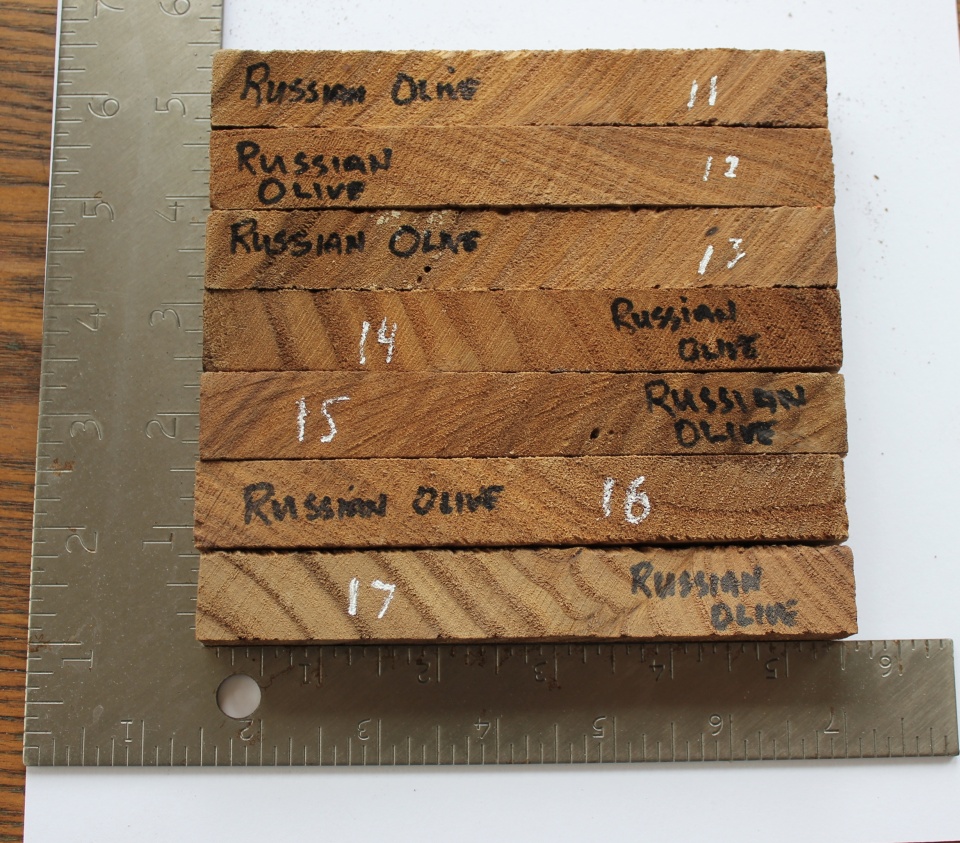 7 6
6 5
5 4
4 3
3 2
2 1
1
RUSSIAN OLIVE 11
RUSSIAN 12
OLIVE
RUSSIAN OLIVE 13
14 RUSSIAN
OLIVE
15 RUSSIAN
OLIVE
RUSSIAN OLIVE 16
17 RUSSIAN
OLIVE
1 2 3 4 5 6
1 2 3 4 5 6 7